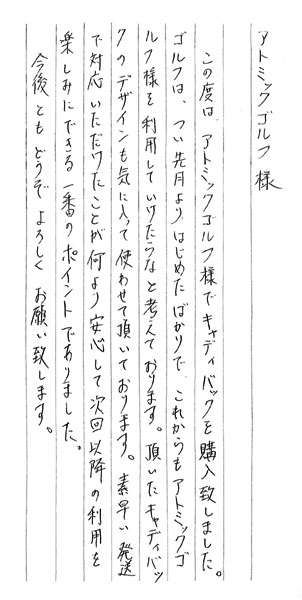 アトミックゴルフ様
この度は、アトミックゴルフ様でキャディバックを購入致しました。
ゴルフは、つい先月よりはじめたばかりで、これからもアトミックゴ
ルフ様を利用していけたらなと考えております。頂いたキャディバッ
クのデザインも気に入って使わせて頂いております。素早い発送
で対応いただけたことが何より安心して次回以降の利用を
楽しみにできる一番のポイントでありました。
今後ともどうぞよろしくお願い致します。